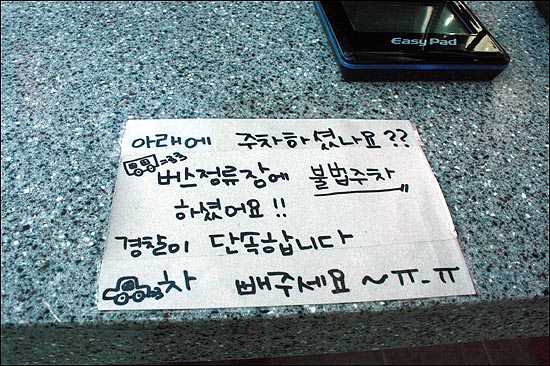 Easy Pad
아래에 주차하셨나요??
버스정류장에 불법주차
하셨어요!!
경찰이 단속합니다
차 빼주세요 ~ㅠ-ㅠ